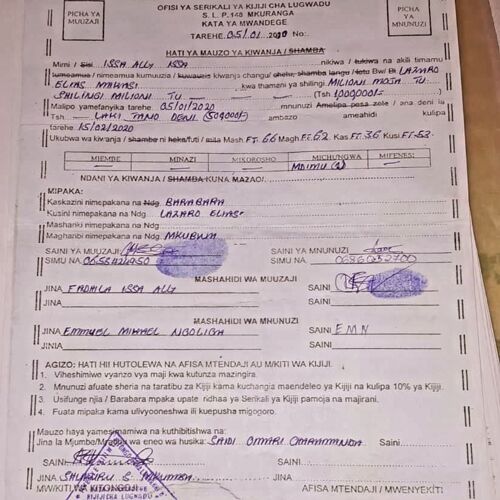 OFISI YA SERIKALI YA KIJIJI CHA LUGWADU
S. L. P. 148 MKURANGA
KATA YA MWANDEGE
PICHA YA MUUZAJI
PICHA YA MNUNUZI
TAREHE 05/01 2020 No:
HATI YA MAUZO YA KIWANJA / SHAMBA
Mimi / Sisi ISSA ALLY ISSA nikiwa / tukiwa na akili timamu
nimemuuzia / kiwanja changu / langu Bw/ Bi LAZARO
ELIAS kwa thamani ya shilingi MILIONI MOJA TU
SHILINGI MILIONI TU (Tsh 1,000,000/=)
Malipo yamefanyika tarehe 05/01/2020 mnunuzi Amelipa pesa zote / ana deni la
Tsh LAKI TANO DENI (500,000/=) ambazo ameahidi kulipa
tarehe 15/02/2020
Ukubwa wa kiwanja / shamba ni Mash FT. 66 Magh FT. 62 Kas FT. 36 Kus FT. 53
MIEMBE MINAZI MIKOROSHO MICHUNGWA MIFENESI
MDIMU (2)
NDANI YA KIWANJA / SHAMBA KUNA MAZAO/
MIPAKA:
Kaskazini nimepakana na Ndg. BARABARA
Kusini nimepakana na Ndg. LAZARO ELIAS
Mashariki nimepakana na Ndg.
Magharibi nimepakana na Ndg. MKUBWA
SAINI YA MUUZAJI SAINI YA MNUNUZI
SIMU NA. SIMU NA.
MASHAHIDI WA MUUZAJI
JINA FADHILA ISSA ALLY SAINI
JINA SAINI
MASHAHIDI WA MNUNUZI
JINA SAINI EMN
JINIA SAINI
AGIZO: HATI HII HUTOLEWA NA AFISA MTENDAJI AU M/KITI WA KIJIJI.
1. Viheshimiwe vyanzo vya maji kwa kutunza mazingira.
2. Mnunuzi afuate sheria na taratibu za Kijiji kama kuchangia maendeleo ya Kijiji na kulipa 10% ya Kijiji.
3. Usifunge njia / Barabara mpaka upate ridhaa ya Serikali ya Kijiji pamoja na majirani.
4. Fuata mipaka kama ulivyooneshwa ili kuepusha migogoro.
Mauzo haya yameshuhudiwa na kuthibitishwa na:
Jina la Mjumbe/ wa eneo wa husika: SAIDI OMARI Saini
SAINI
JINA SAINI
MW/KITI WA KITONGOJI AFISA MTENDAJI / MWENYEKITI
KIJIJI CHA LUGWADU